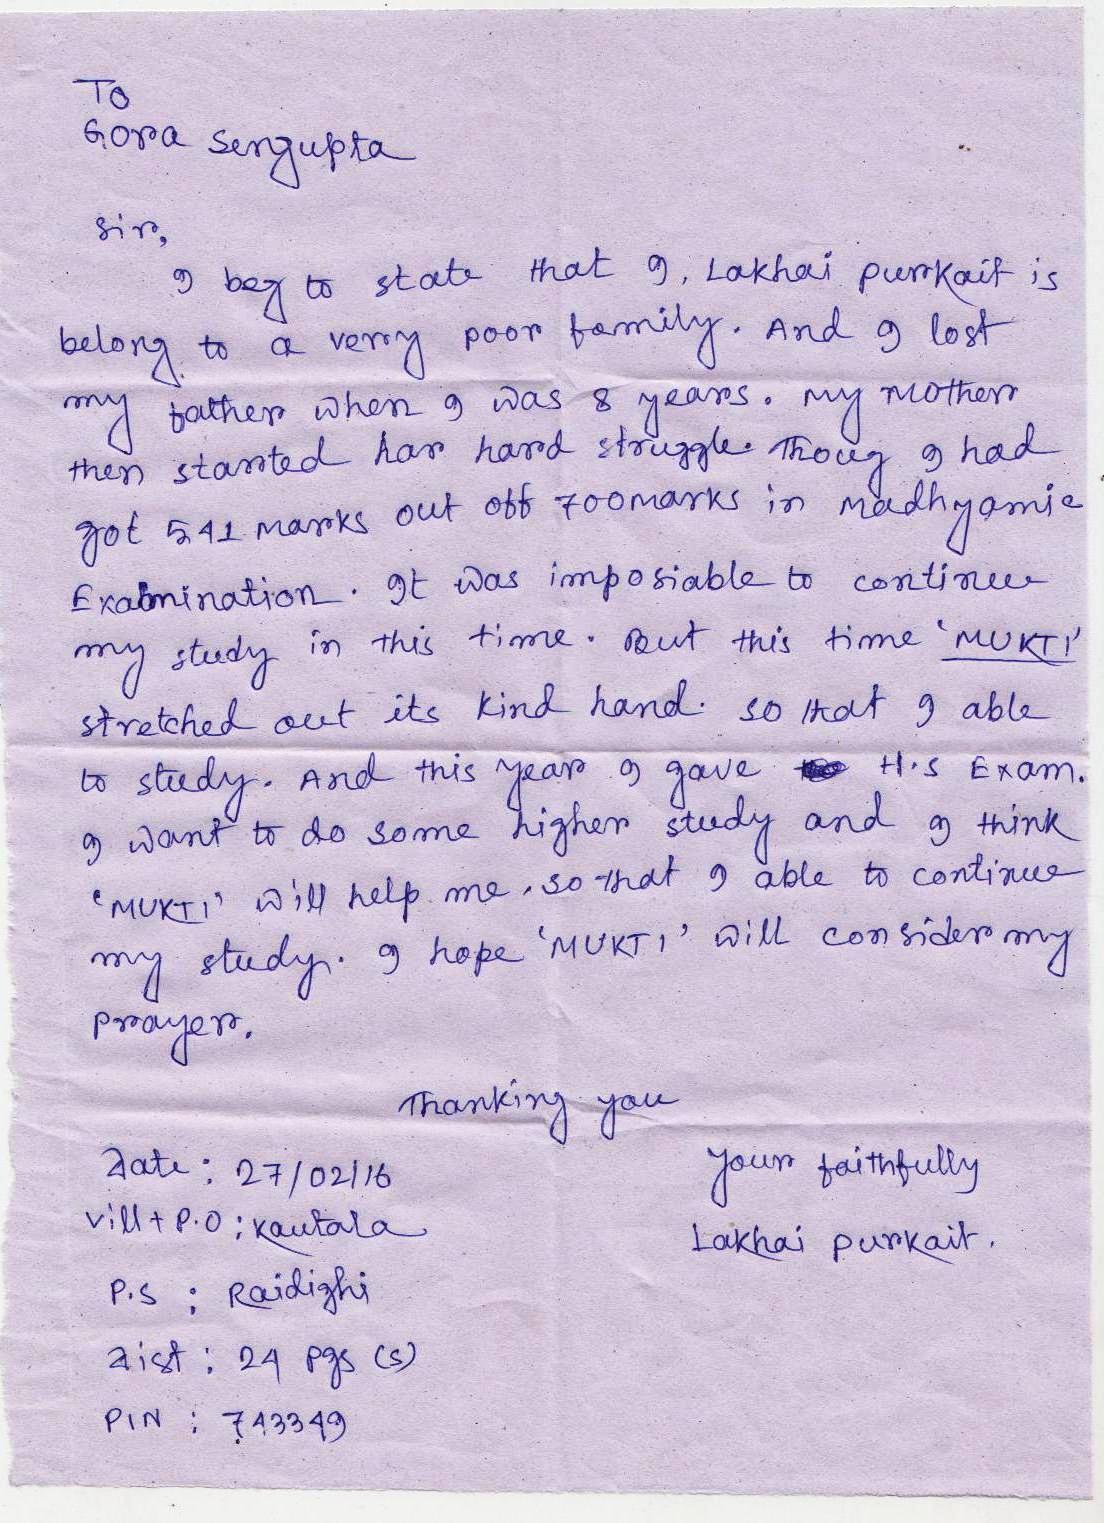 To
Gora Sengupta
Sir,
I beg to state that I, Lakhai Purkait is
belong to a verry poor family. And I lost
my father when I was 8 years. My Mother
then started har hard struggle. Thoug I had
got 541 Marks out off 700marks in Madhyamic
Examination. It was imposiable to continue
my study in this time. But this time 'MUKTI'
stretched out its kind hand. so that I able
to study. And this year I gave H.S Exam.
I want to do some higher study and I think
'MUKTI' will help me. so that I able to continue
my study. I hope 'MUKTI' will consider my
prayer.
Thanking you
Date : 27/02/16
Your faithfully
Vill + P.O : Kautala
Lakhai Purkait.
P.S : Raidighi
Dist : 24 pgs (s)
PIN : 743349